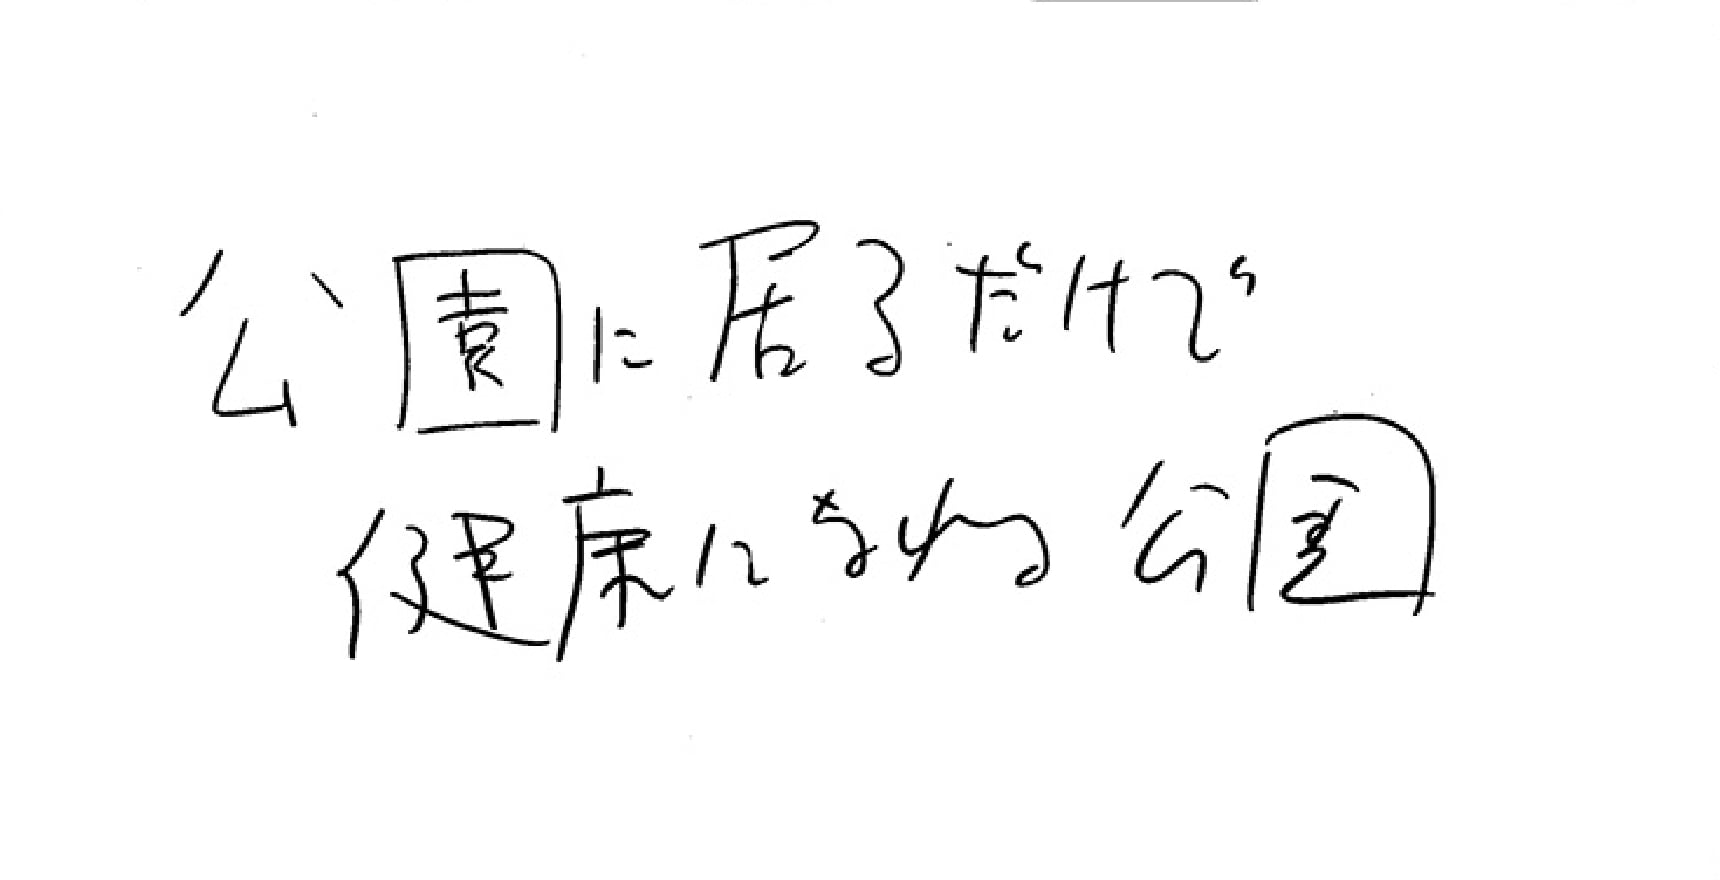 公園に居るだけで
健康になれる公園